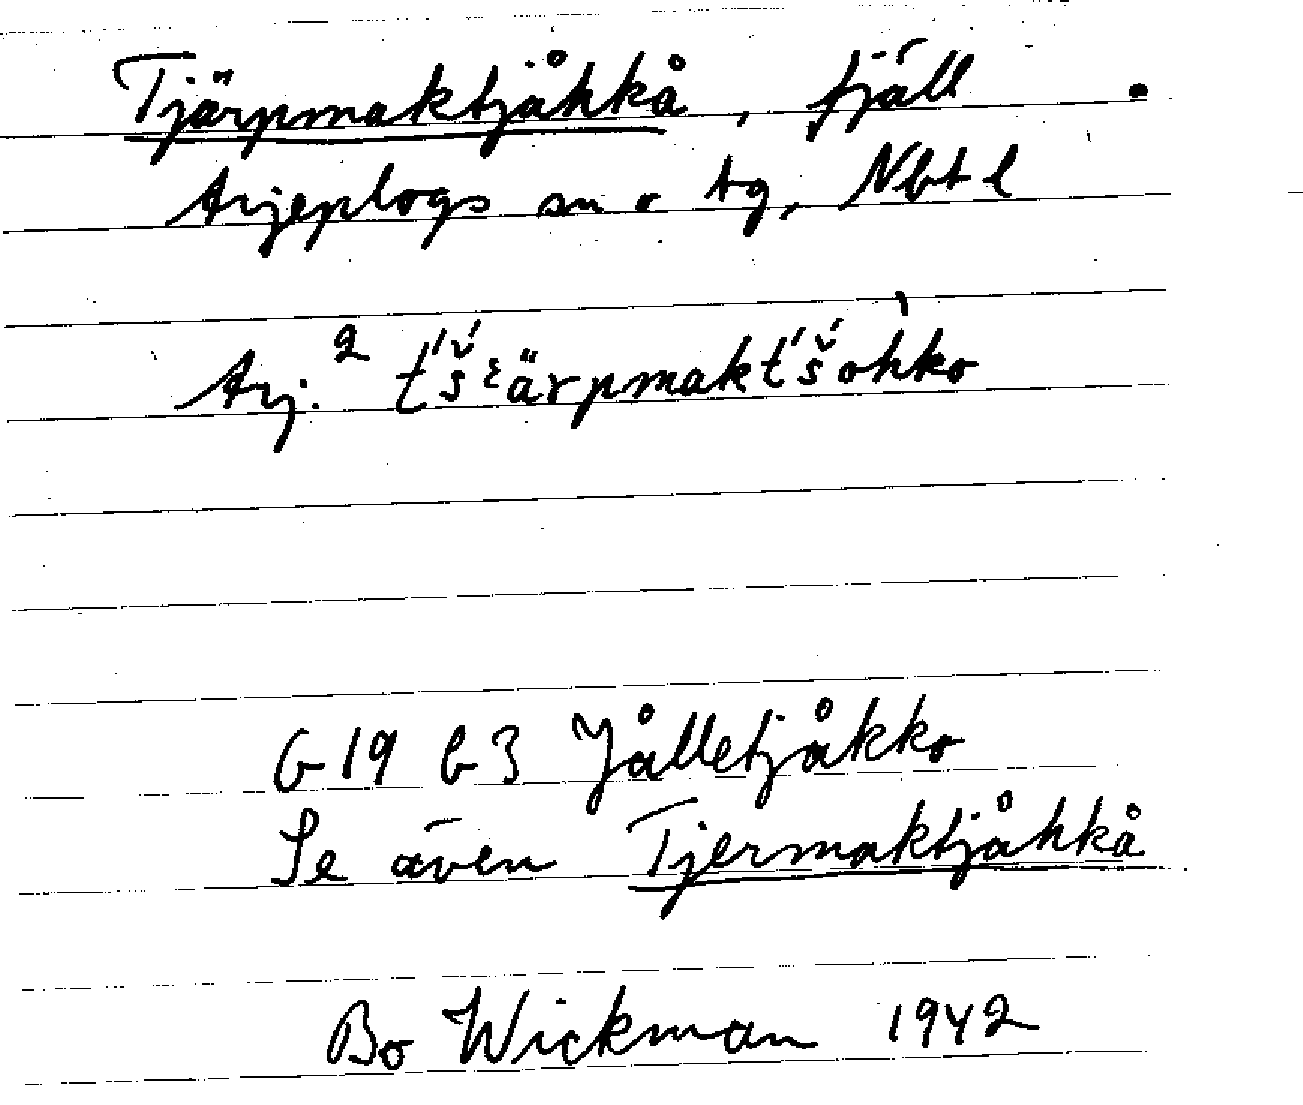 Tjärpmaktjåhkå, fjäll
Arjeplogs sn o tg, Nbt l
Arj. 2 t́š́ᵋärpmakt́š́ohko
G 19 b 3 Jålletjåkko
Se även Tjermaktjåhkå
Bo Wickman 1942